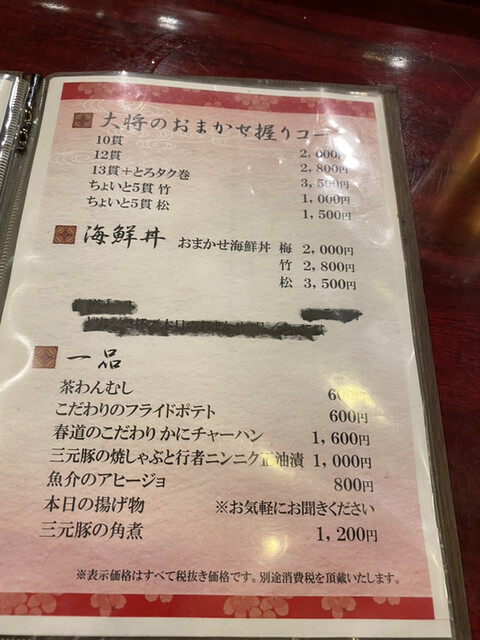 大将のおまかせ握りコー
10貫 2,000円
12貫 2,800円
13貫＋とろタク巻 3,500円
ちょいと5貫 竹 1,000円
ちょいと5貫 松 1,500円
海鮮丼 おまかせ海鮮丼 梅 2,000円
竹 2,800円
松 3,500円
一品
茶わんむし 600円
こだわりのフライドポテト 600円
春道のこだわり かにチャーハン 1,600円
三元豚の焼しゃぶと行者ニンニク正油漬 1,000円
魚介のアヒージョ 800円
本日の揚げ物 ※お気軽にお聞きください
三元豚の角煮 1,200円
※表示価格はすべて税抜き価格です。別途消費税を頂戴いたします。